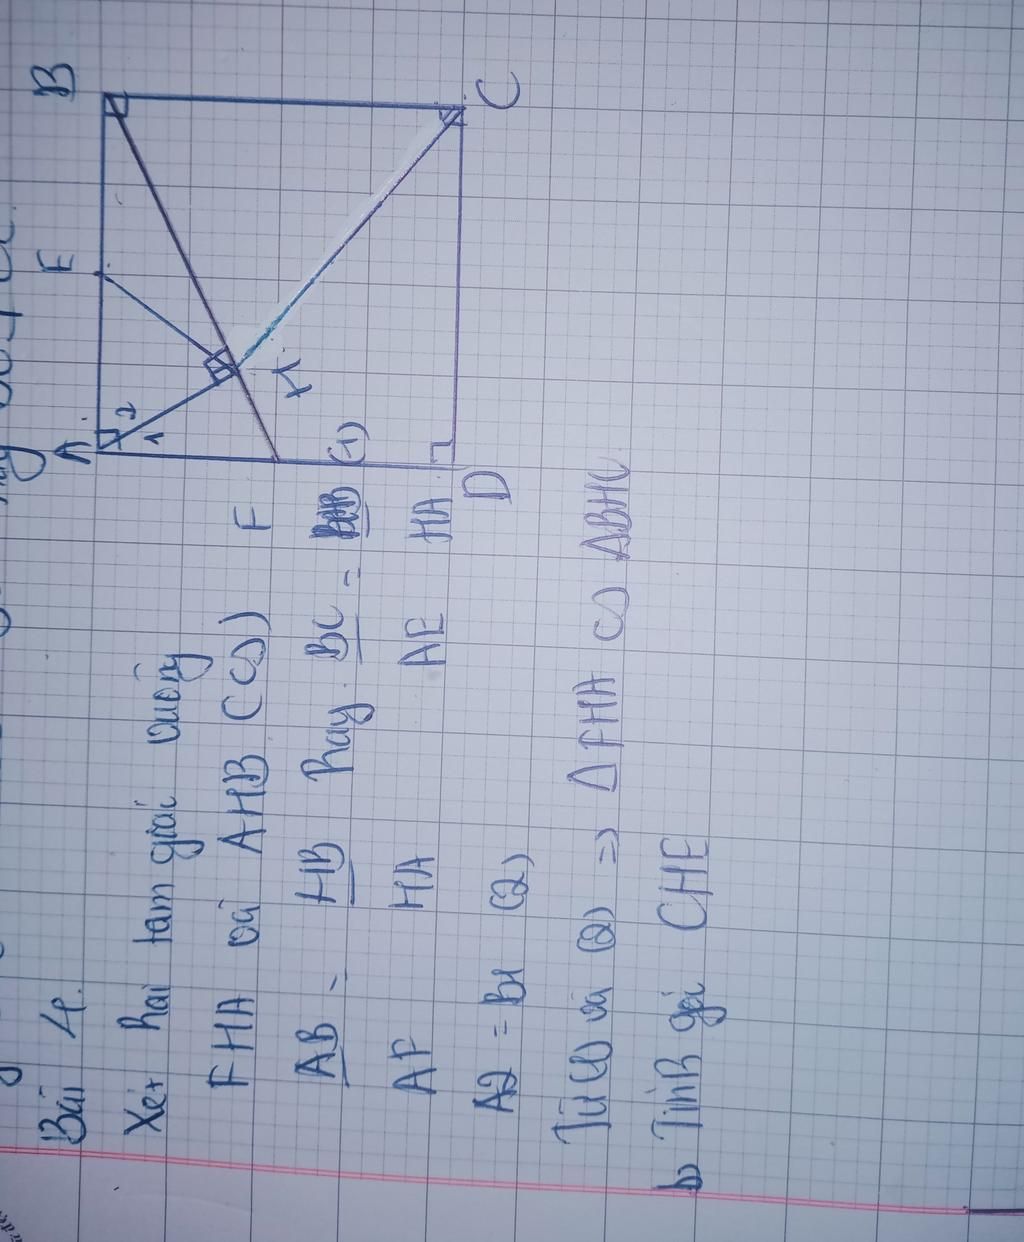 Bài 4.
Xét hai tam giác vuông
FHA và AHB (∽)
AB = HB hay BC = HB (1)
AF HA AE HA
A2 = B1 (2)
Từ (1) và (2) => Δ FHA ∽ ΔBHC
b) Tính góc CHE
A
E
B
1
2
H
F
D
C